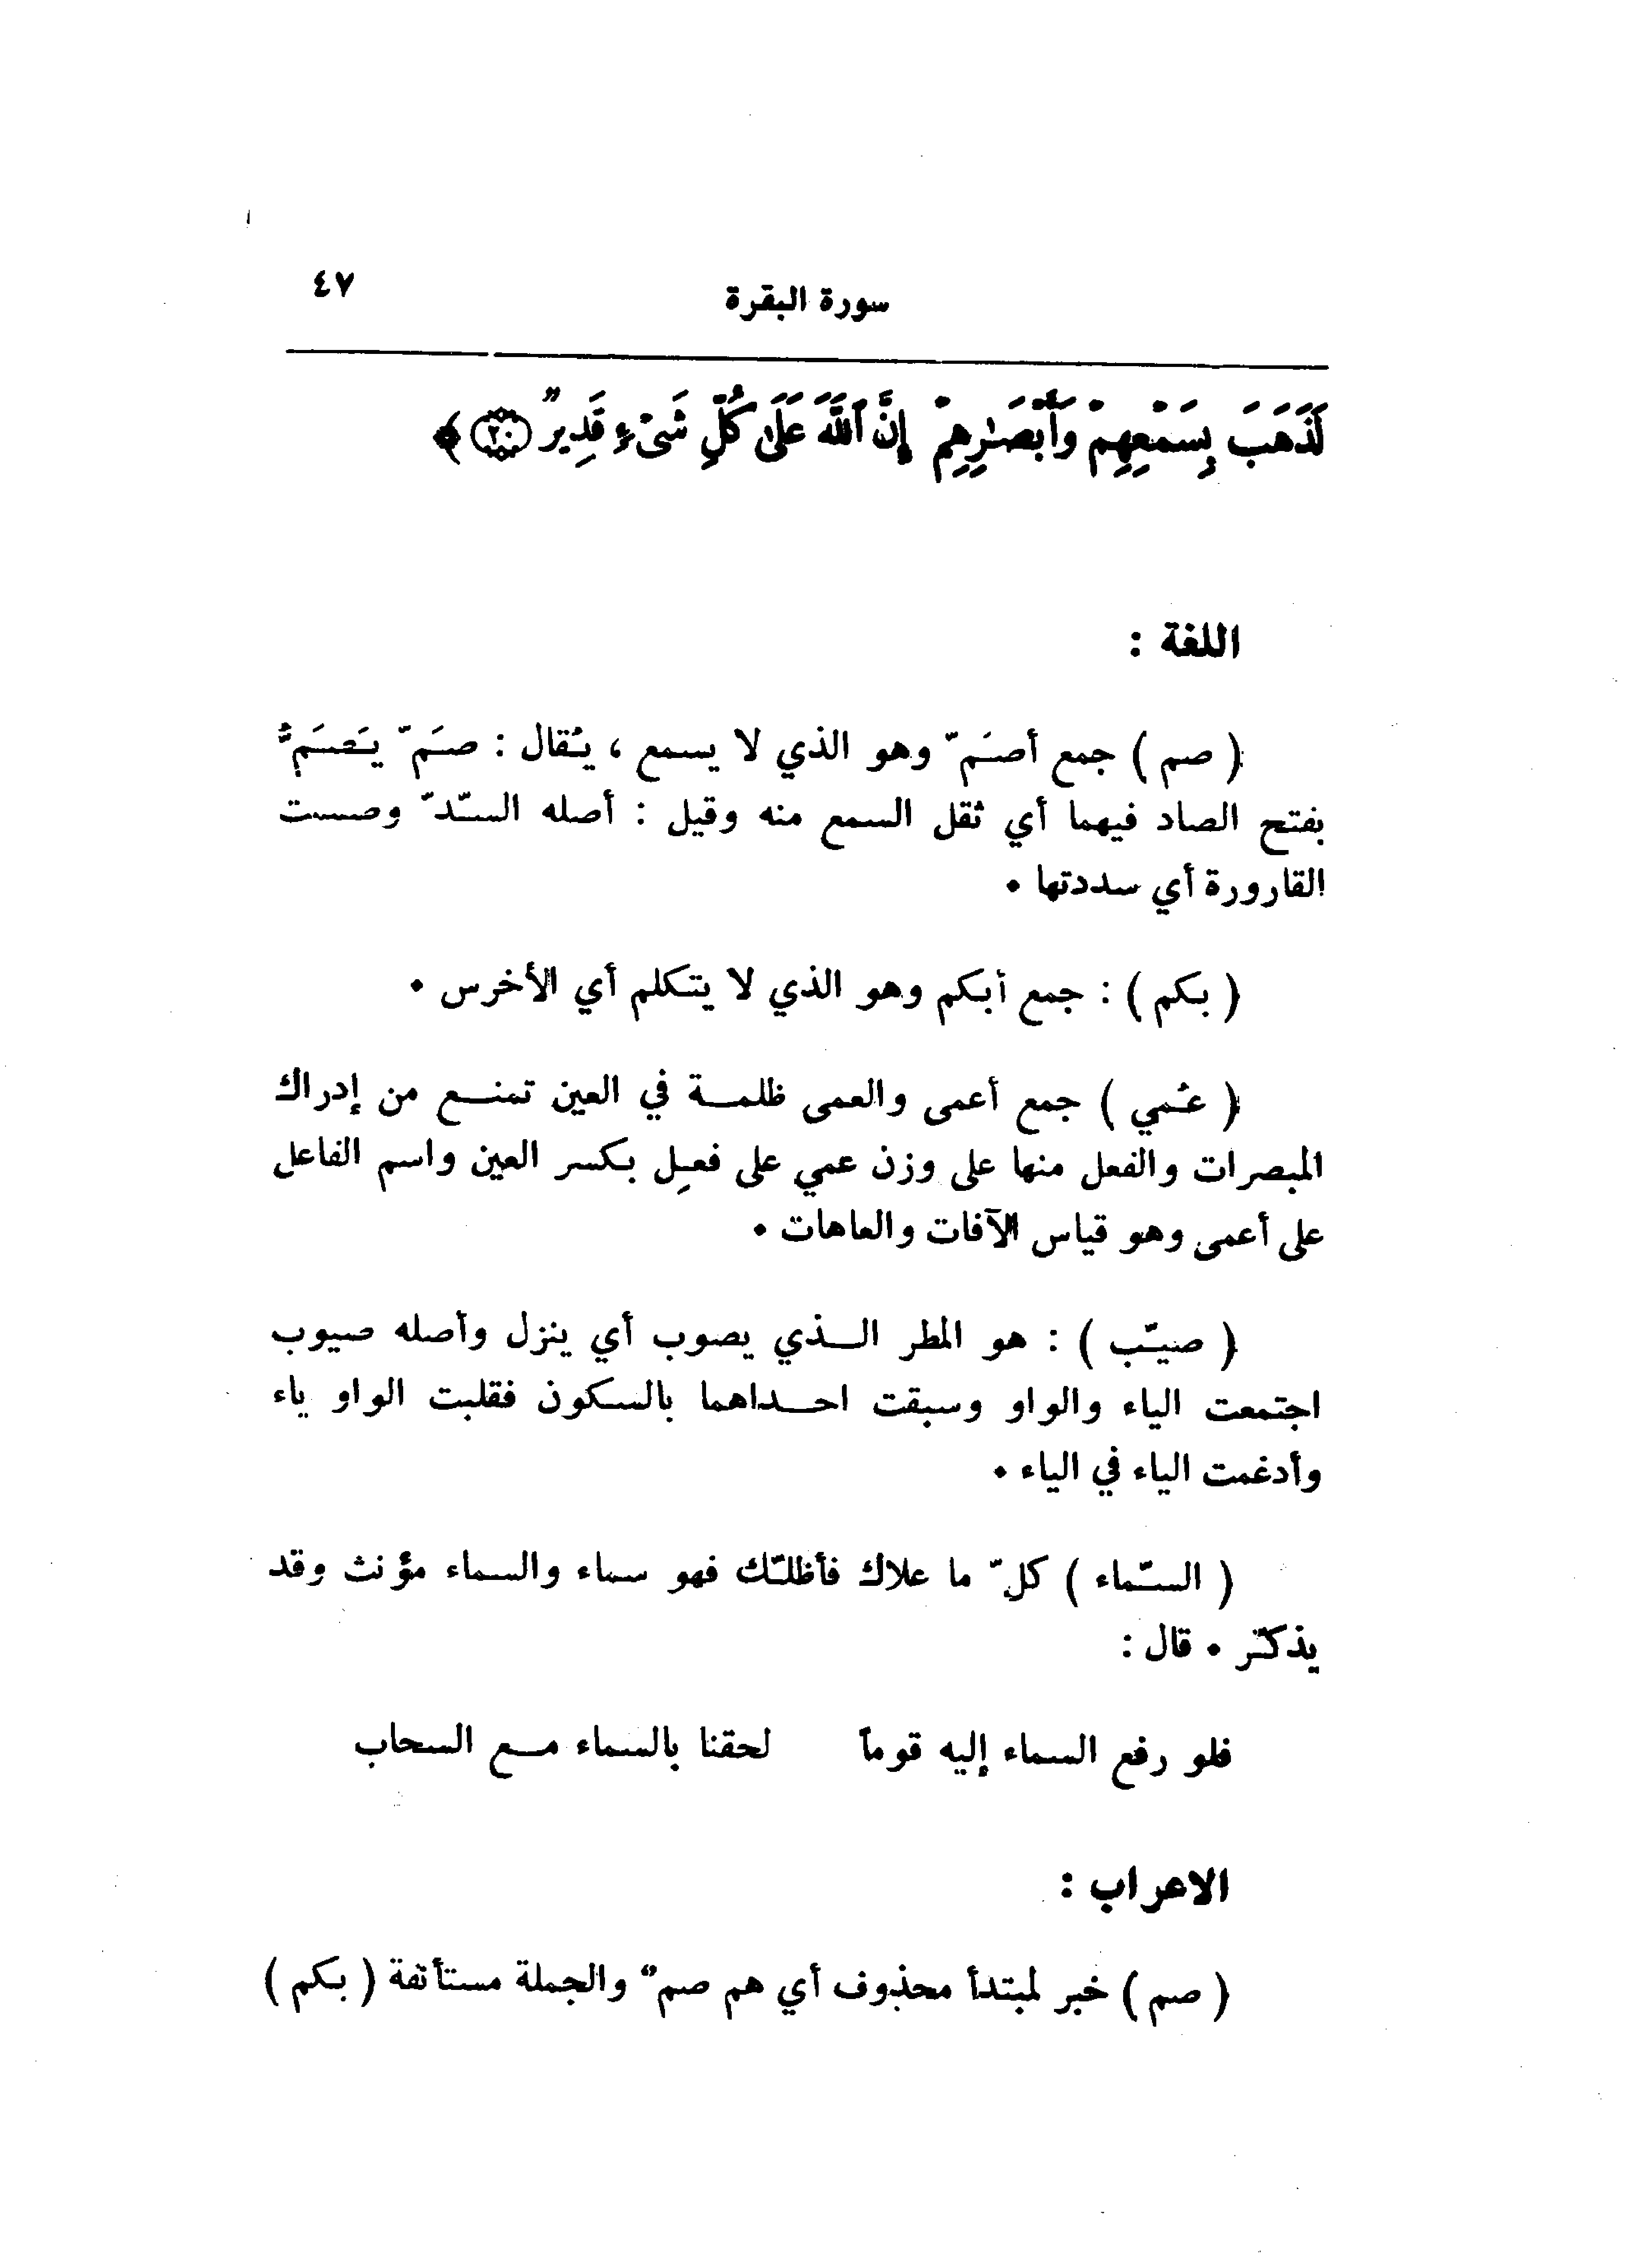 سورة البقرة ٤٧
لَذَهَبَ بِسَمْعِهِمْ وَأَبْصَـٰرِهِمْ إِنَّ ٱللَّهَ عَلَىٰ كُلِّ شَىْءٍ قَدِيرٌ ﴿٢٠﴾
اللغة :
( صم ) جمع أصَمّ وهو الذي لا يسمع ، يُقال : صَمّ يَصَمُّ
بفتح الصاد فيهما أي ثقل السمع منه وقيل : أصله السّدّ وصممت
القارورة أي سددتها .
( بكم ) : جمع أبكم وهو الذي لا يتكلم أي الأخرس .
( عُمي ) جمع أعمى والعمى ظلمة في العين تمنع من إدراك
المبصرات والفعل منها على وزن عمي على فعِل بكسر العين واسم الفاعل
على أعمى وهو قياس الآفات والعاهات .
( صيّب ) : هو المطر الذي يصوب أي ينزل وأصله صيوب
اجتمعت الياء والواو وسبقت احداهما بالسكون فقلبت الواو ياء
وأدغمت الياء في الياء .
( السّماء ) كلّ ما علاك فأظلّك فهو سماء والسماء مؤنث وقد
يذكّر . قال :
فلو رفع السماء إليه قوماً لحقنا بالسماء مع السحاب
الاعراب :
( صم ) خبر لمبتدأ محذوف أي هم صمٌ والجملة مستأنفة ( بكم )